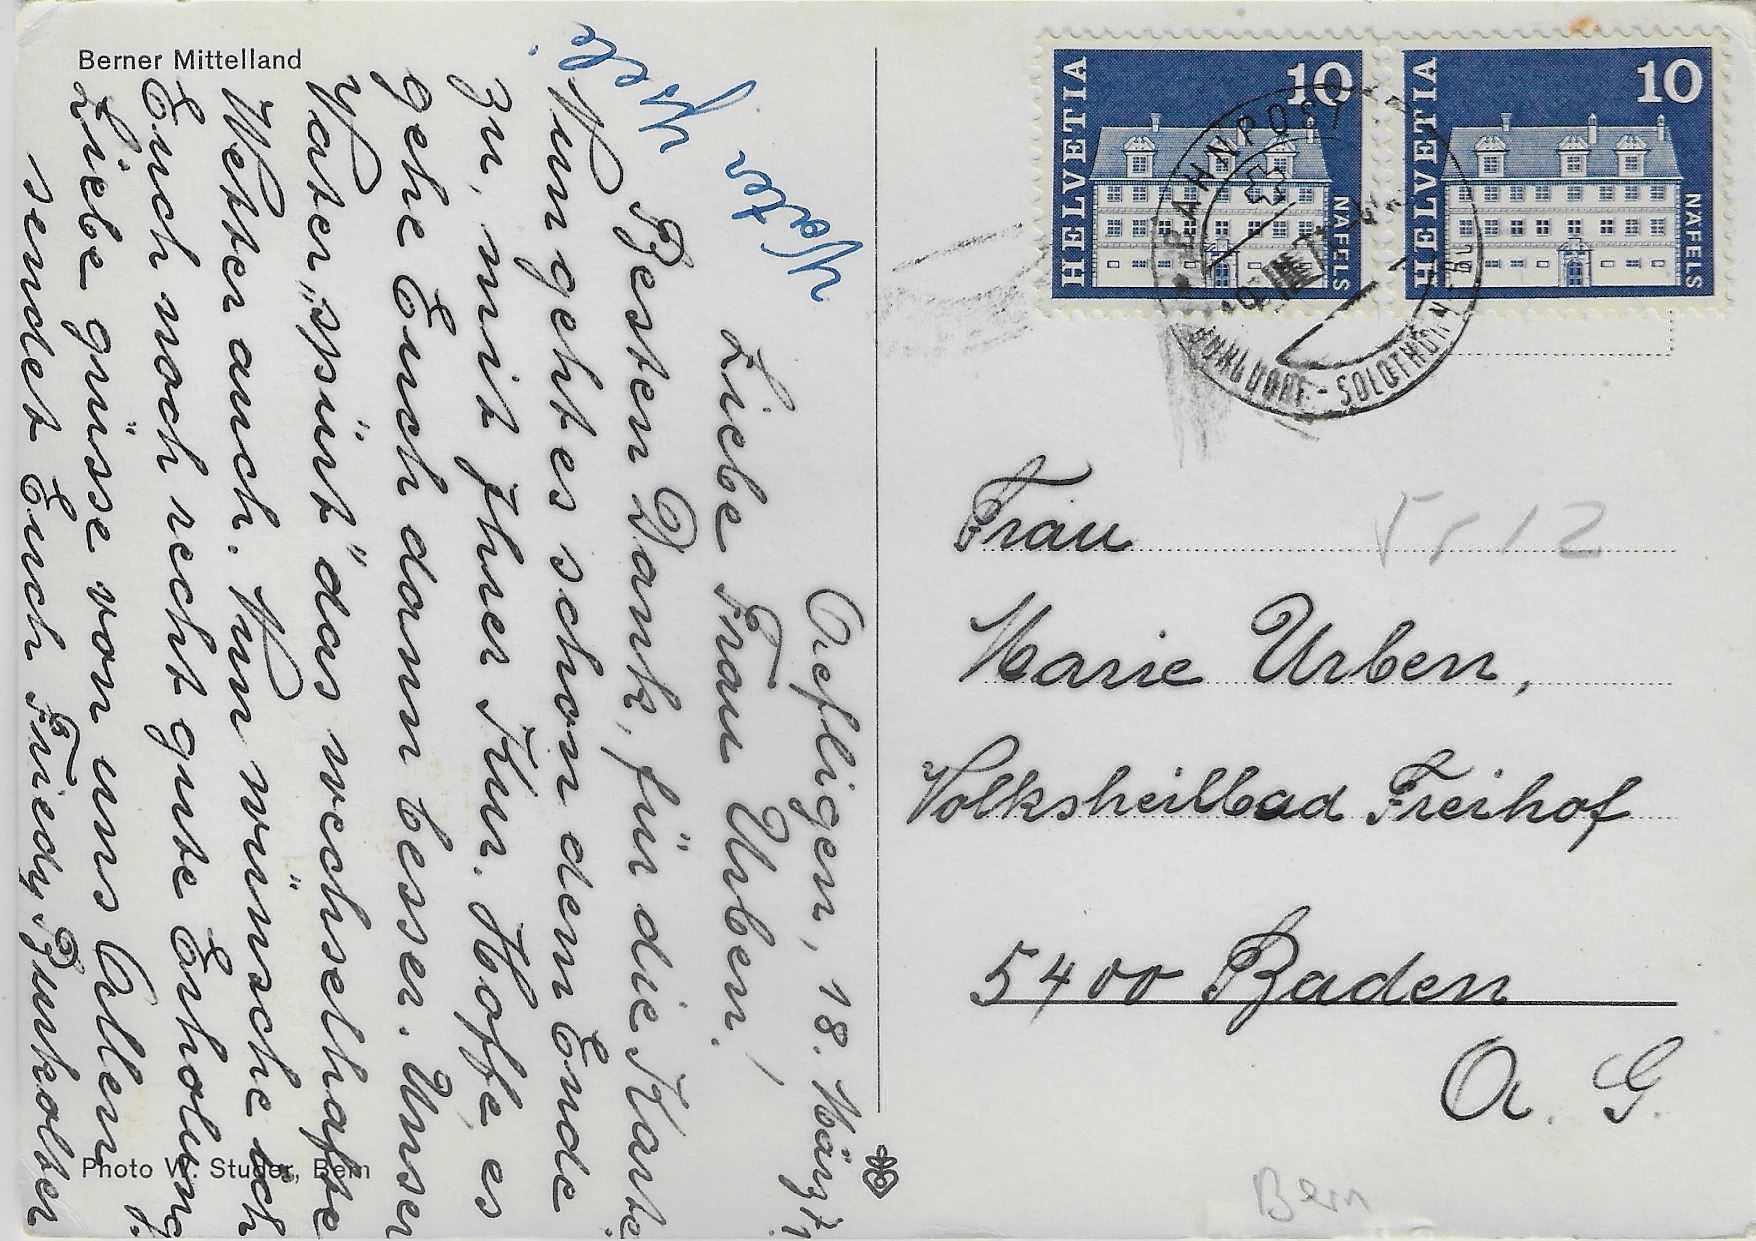 Berner Mittelland
Aefligen, 18. März 71
Liebe Frau Urben!
Besten Dank, für die Karte.
Nun geht es schon dem Ende
zu, mit Ihrer Kur. Hoffe, es
gehe Euch dann besser. Unser
Vater "spürt" das wechselhafte
Wetter auch. Nun wünsche ich
Euch noch recht gute Erholung
Liebe grüsse von uns Allen
sendet Euch Friedy
Vater
Photo W. Studer, Bern
HELVETIA
10
NÄFELS
HELVETIA
10
NÄFELS
BAHNPOST
BURGDORF - SOLOTHURN
Frau
Marie Urben,
Volksheilbad Freihof
5400 Baden
A. G.
Bern